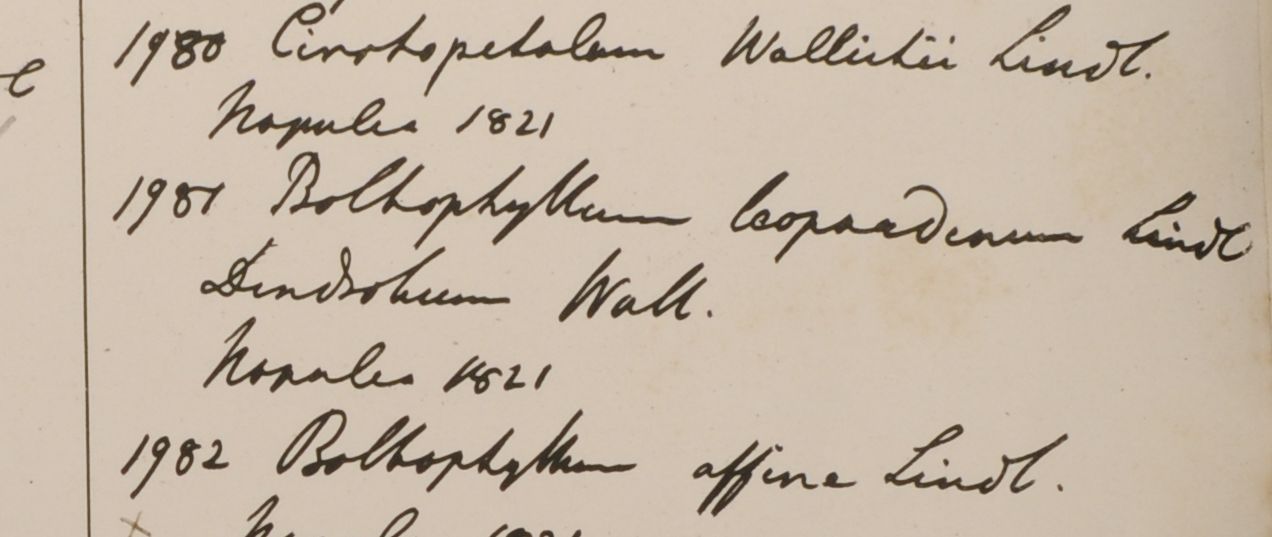 1980 Cirrhopetalum Wallichii Lindl.
Napalia 1821
1981 Bolbophyllum leopardinum Lindl
Dendrobium Wall.
Napalia 1821
1982 Bolbophyllum affine Lindl.